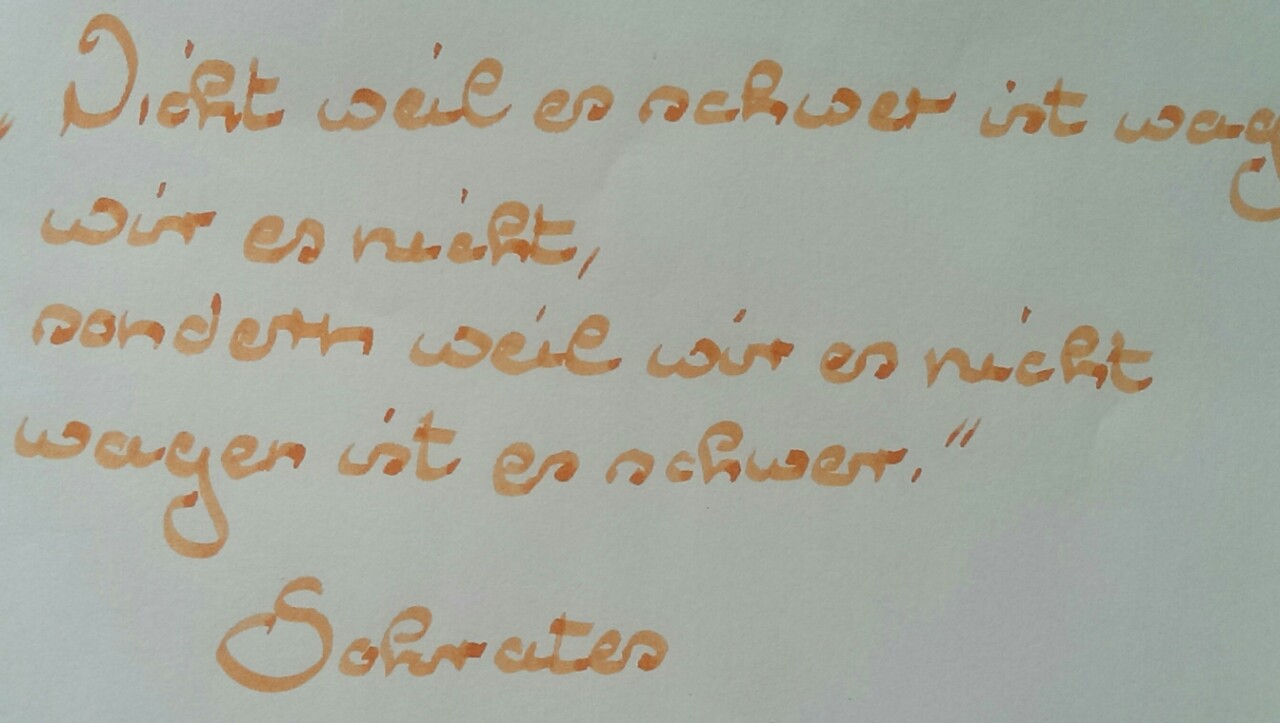 „Nicht weil es schwer ist wag
wir es nicht,
sondern weil wir es nicht
wagen ist es schwer."
Sokrates